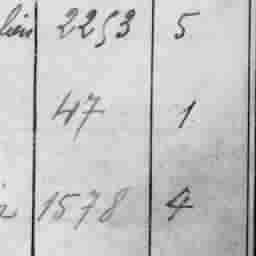 2253 5
47 1
1578 4